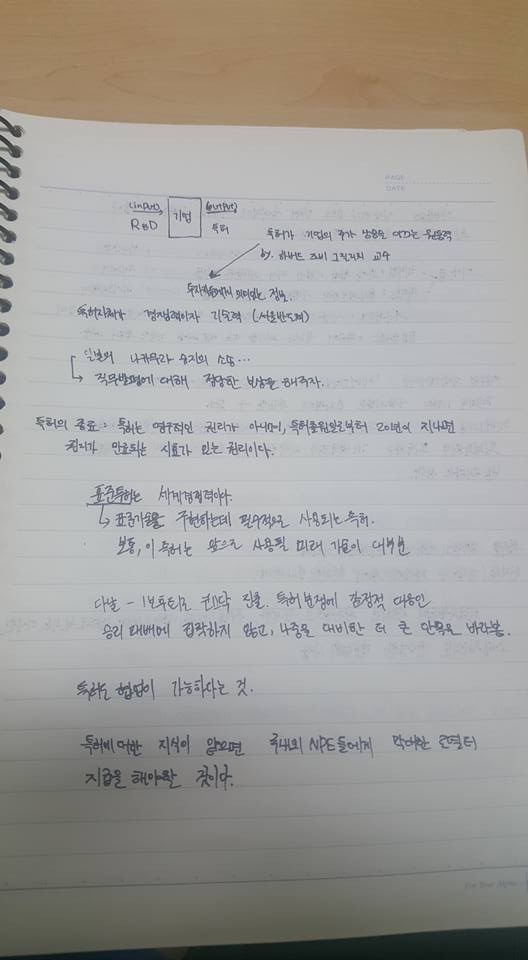 PAGE
DATE
(input) 기업 (output)
R&D 특허
특허가 기업의 주가 방향을 이끄는 원동력
by. 하버드 즈비 그릴리치 교수
투자자들에게 의미있는 정보.
특허자체가 경쟁력이자 기술력 (서울반도체)
일본의 나카무라 슈지의 소송…
→ 직무발명에 대해 정당한 보상을 해주자.
특허의 종료 : 특허는 영구적인 권리가 아니며, 특허출원일로부터 20년이 지나면
권리가 만료되는 시효가 있는 권리이다.
표준특허는 세계경쟁력이다.
↳ 표준기술을 구현하는데 필수적으로 사용되는 특허.
보통, 이 특허는 앞으로 사용될 미래 기술이 대부분
다날 - 1보후퇴로 진출. 특허분쟁에 감정적 대응인
승리 패배에 집착하지 않고, 나중을 대비한 더 큰 안목을 바라봄.
특허는 협업이 가능하다는 것.
특허에 대한 지식이 없으면 국내외 NPE들에게 막대한 로열티
지급을 해야할 것이다.